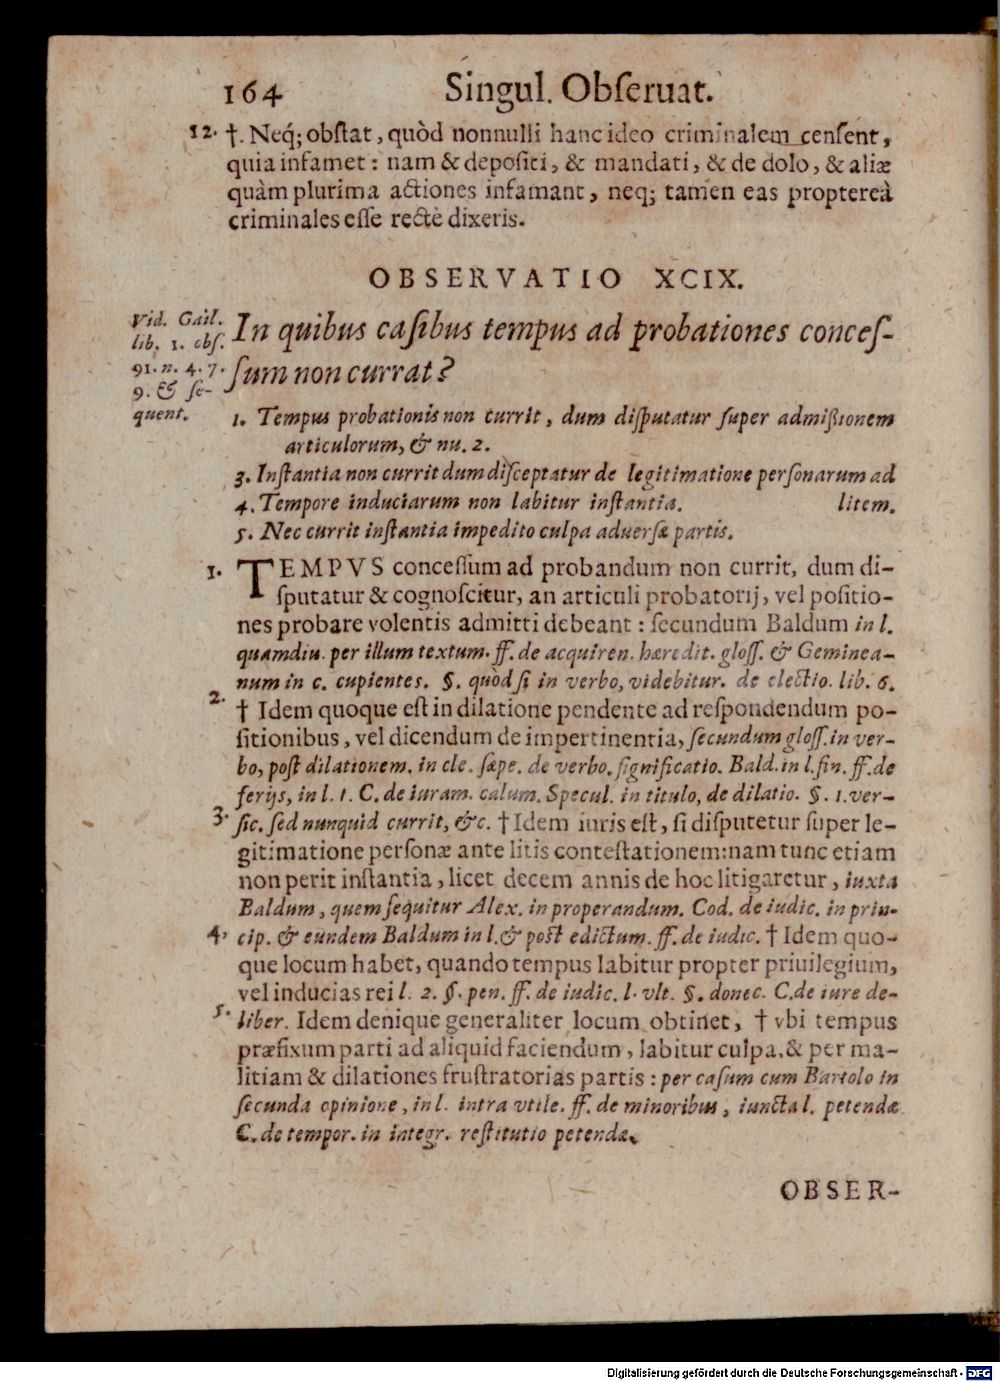 164 Singul. Obſeruat.
12. †. Neq́; obſtat, quòd nonnulli hanc ideo criminalem cenſent,
quia infamet: nam & depoſiti, & mandati, & de dolo, & aliæ
quàm plurima actiones infamant, neq; tamen eas proptereà
criminales eſſe rectè dixeris.
OBSERVATIO XCIX.
Vid. Gail.
lib. 1. obſ.
91. n. 4. 7.
9. & ſe-
quent.
In quibus caſibus tempus ad probationes conceſ-
ſum non currat?
1. Tempus probationis non currit, dum diſputatur ſuper admißionem
articulorum, & nu. 2.
3. Inſtantia non currit dum diſceptatur de legitimatione perſonarum ad
4. Tempore induciarum non labitur inſtantia. litem.
5. Nec currit inſtantia impedito culpa aduerſæ partis.
1. TEMPVS conceſſum ad probandum non currit, dum di-
ſputatur & cognoſcitur, an articuli probatorij, vel poſitio-
nes probare volentis admitti debeant: ſecundum Baldum in l.
quamdiu. per illum textum. ff. de acquiren. hæredit. gloſſ. & Geminea-
num in c. cupientes. §. quòd ſi in verbo, videbitur. de electio. lib. 6.
2. † Idem quoque eſt in dilatione pendente ad reſpondendum po-
ſitionibus, vel dicendum de impertinentia, ſecundum gloſſ. in ver-
bo, poſt dilationem. in cle. ſæpe. de verbo. ſignificatio. Bald. in l. fin. ff. de
ferijs, in l. 1. C. de iuram. calum. Specul. in titulo, de dilatio. §. 1. ver-
3. ſic. ſed nunquid currit, &c. † Idem iuris eſt, ſi diſputetur ſuper le-
gitimatione perſonæ ante litis conteſtationem: nam tunc etiam
non perit inſtantia, licet decem annis de hoc litigaretur, iuxta
Baldum, quem ſequitur Alex. in properandum. Cod. de iudic. in prin-
4. cip. & eundem Baldum in l. & poſt edictum. ff. de iudic. † Idem quo-
que locum habet, quando tempus labitur propter priuilegium,
vel inducias rei l. 2. §. pen. ff. de iudic. l. vlt. §. donec. C. de iure de-
5. liber. Idem denique generaliter locum obtinet, † vbi tempus
præfixum parti ad aliquid faciendum, labitur culpa, & per ma-
litiam & dilationes fruſtratorias partis: per caſum cum Bartolo in
ſecunda opinione, in l. intra vtile. ff. de minoribus, iuncta l. petendæ
C. de tempor. in integr. reſtitutio petendæ.
OBSER-
Digitalisierung gefördert durch die Deutsche Forschungsgemeinschaft - DFG